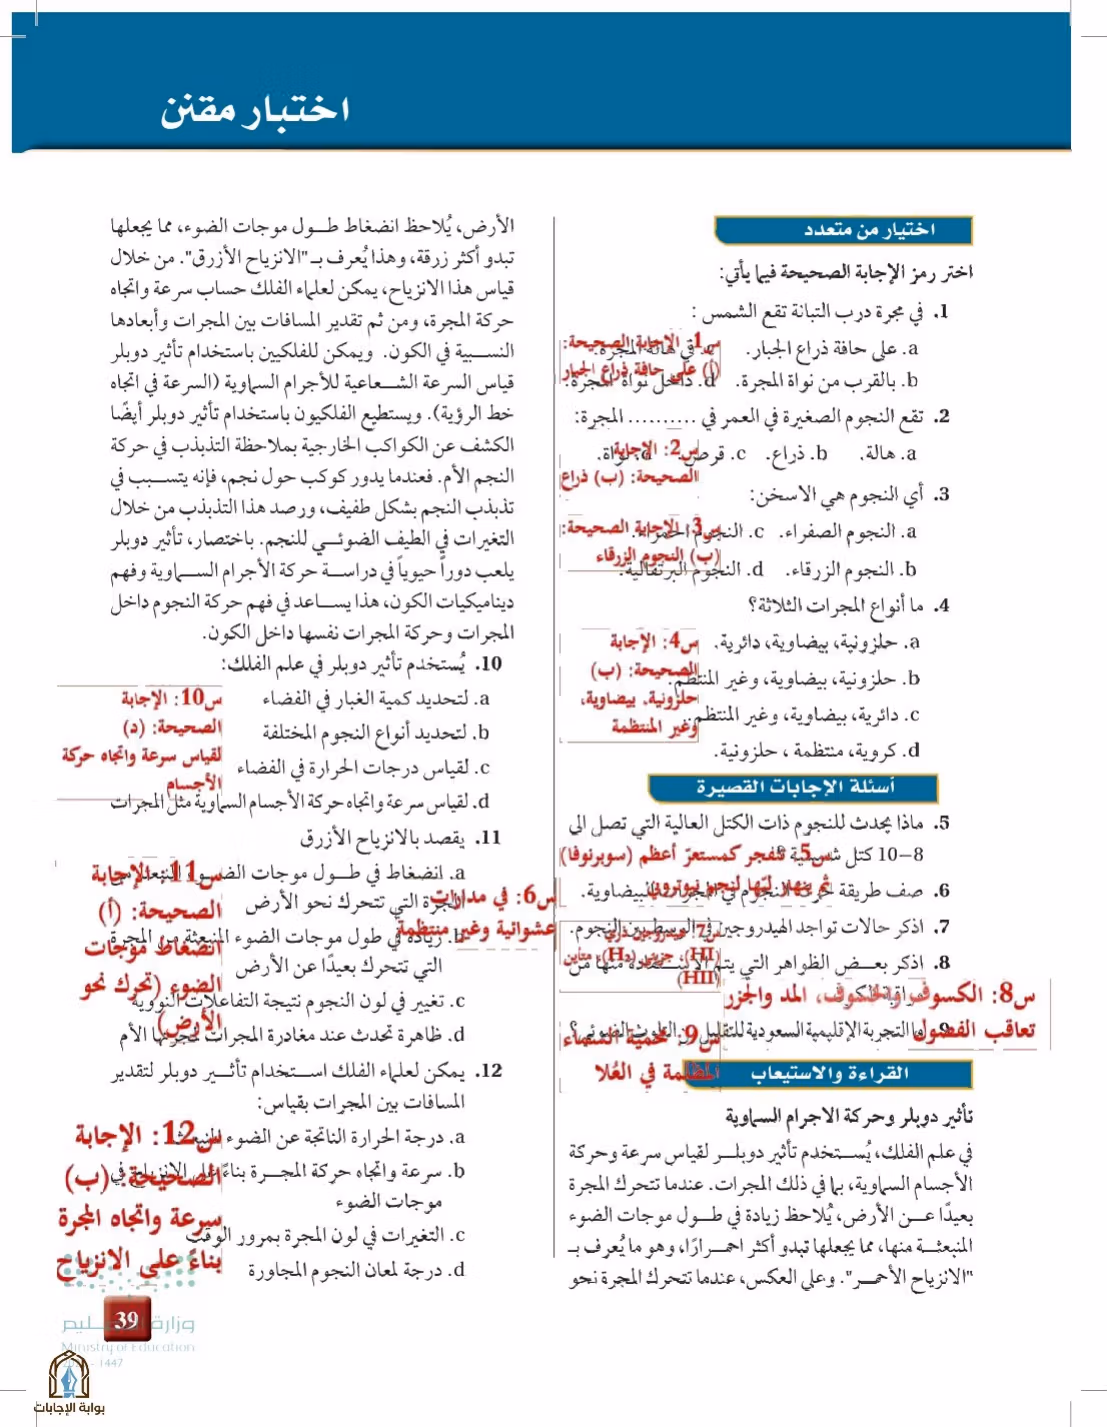 اختبار مقنن
اختيار من متعدد
اختر رمز الإجابة الصحيحة فيما يأتي:
1. في مجرة درب التبانة تقع الشمس :
a. على حافة ذراع الجبار. في هالة المجرة.
b. بالقرب من نواة المجرة. d. داخل نواة المجرة.
س1: الإجابة الصحيحة:
(أ) على حافة ذراع الجبار
2. تقع النجوم الصغيرة في العمر في .......... المجرة:
a. هالة. b. ذراع. c. قرص. d. نواة.
س2: الإجابة
الصحيحة: (ب) ذراع
3. أي النجوم هي الاسخن:
a. النجوم الصفراء. c. النجوم الحمراء.
b. النجوم الزرقاء. d. النجوم البرتقالية.
س3: الإجابة الصحيحة:
(ب) النجوم الزرقاء
4. ما أنواع المجرات الثلاثة؟
a. حلزونية، بيضاوية، دائرية.
b. حلزونية، بيضاوية، وغير المنتظم.
c. دائرية، بيضاوية، وغير المنتظم.
d. كروية، منتظمة ، حلزونية.
س4: الإجابة
الصحيحة: (ب)
حلزونية، بيضاوية،
وغير المنتظمة
أسئلة الإجابات القصيرة
5. ماذا يحدث للنجوم ذات الكتل العالية التي تصل الى
8–10 كتل شمسية ؟
س5: تنفجر كمستعرّ أعظم (سوبرنوفا)
ثم ينهار لبّها لنجم نيوتروني
6. صف طريقة حركة النجوم في المجرات البيضاوية.
س6: في مدارات
عشوائية وغير منتظمة
7. اذكر حالات تواجد الهيدروجين في الوسط بين النجوم.
س7: هيدروجين ذري
(HI)، جزيئي (H₂)، متأين
(HII)
8. اذكر بعض الظواهر التي يتم الاستفادة منها من
س8: الكسوف والخسوف، المد والجزر
تعاقب الفصول
9. ما التجربة الإقليمية السعودية للتقليل من التلوث الضوئي؟
س9: محمية السماء
المظلمة في العُلا
القراءة والاستيعاب
تأثير دوبلر وحركة الاجرام السماوية
في علم الفلك، يُستخدم تأثير دوبلر لقياس سرعة وحركة
الأجسام السماوية، بما في ذلك المجرات. عندما تتحرك المجرة
بعيدًا عن الأرض، يُلاحظ زيادة في طول موجات الضوء
المنبعثة منها، مما يجعلها تبدو أكثر احمرارًا، وهو ما يُعرف بـ
"الانزياح الأحمر". وعلى العكس، عندما تتحرك المجرة نحو
الأرض، يُلاحظ انضغاط طول موجات الضوء، مما يجعلها
تبدو أكثر زرقة، وهذا يُعرف بـ "الانزياح الأزرق". من خلال
قياس هذا الانزياح، يمكن لعلماء الفلك حساب سرعة واتجاه
حركة المجرة، ومن ثم تقدير المسافات بين المجرات وأبعادها
النسبية في الكون. ويمكن للفلكيين باستخدام تأثير دوبلر
قياس السرعة الشعاعية للأجرام السماوية (السرعة في اتجاه
خط الرؤية). ويستطيع الفلكيون باستخدام تأثير دوبلر أيضًا
الكشف عن الكواكب الخارجية بملاحظة التذبذب في حركة
النجم الأم. فعندما يدور كوكب حول نجم، فإنه يتسبب في
تذبذب النجم بشكل طفيف، ورصد هذا التذبذب من خلال
التغيرات في الطيف الضوئي للنجم. باختصار، تأثير دوبلر
يلعب دوراً حيوياً في دراسة حركة الأجرام السماوية وفهم
ديناميكيات الكون، هذا يساعد في فهم حركة النجوم داخل
المجرات وحركة المجرات نفسها داخل الكون.
10. يُستخدم تأثير دوبلر في علم الفلك:
a. لتحديد كمية الغبار في الفضاء
b. لتحديد أنواع النجوم المختلفة
c. لقياس درجات الحرارة في الفضاء
d. لقياس سرعة واتجاه حركة الأجسام السماوية مثل المجرات
س10: الإجابة
الصحيحة: (د)
لقياس سرعة واتجاه حركة
الأجسام
11. يقصد بالانزياح الأزرق
a. انضغاط في طول موجات الضوء المنبعثة من
المجرة التي تتحرك نحو الأرض
b. زيادة في طول موجات الضوء المنبعثة من المجرة
التي تتحرك بعيدًا عن الأرض
c. تغيير في لون النجوم نتيجة التفاعلات النووية
d. ظاهرة تحدث عند مغادرة المجرات لمجرتها الأم
س11: الإجابة
الصحيحة: (أ)
انضغاط موجات
الضوء (تحرك نحو
الأرض)
12. يمكن لعلماء الفلك استخدام تأثير دوبلر لتقدير
المسافات بين المجرات بقياس:
a. درجة الحرارة الناتجة عن الضوء المنبعث
b. سرعة واتجاه حركة المجرة بناءً على الانزياح في
موجات الضوء
c. التغيرات في لون المجرة بمرور الوقت
d. درجة لمعان النجوم المجاورة
س12: الإجابة
الصحيحة: (ب)
سرعة واتجاه المجرة
بناءً على الانزياح
39
وزارة التعليم
Ministry of Education
- 1447
بوابة الإجابات